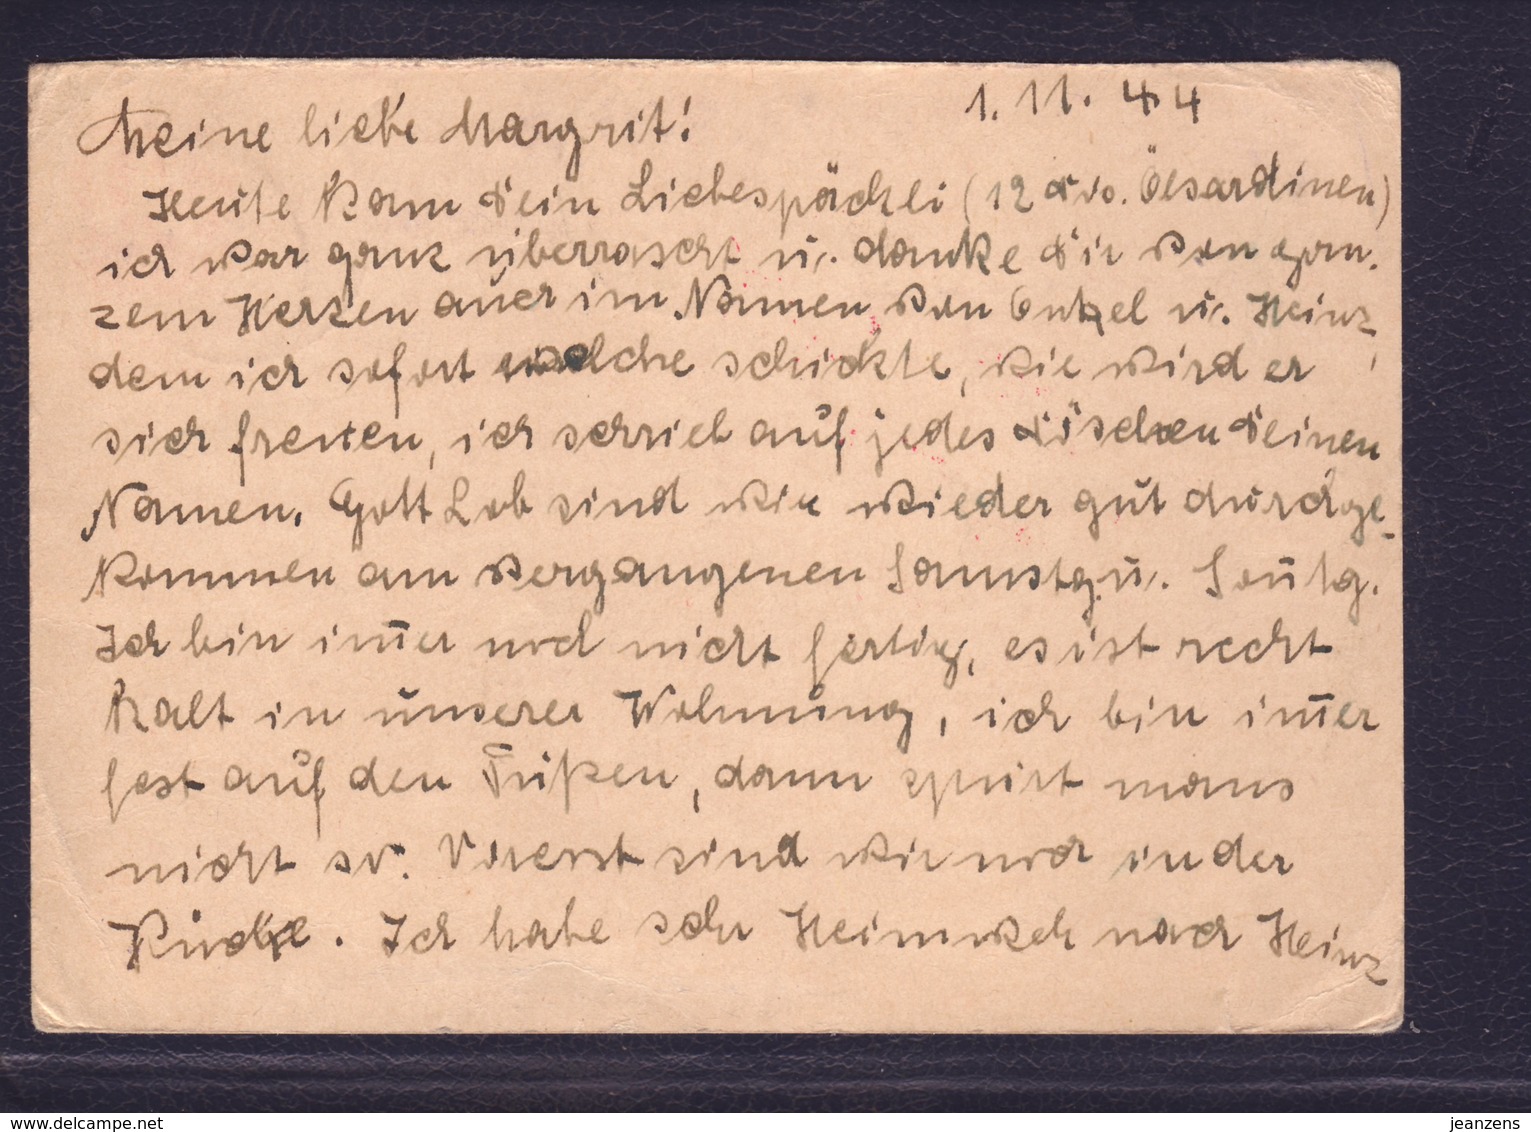 1. 11. 44
Meine liebe Margrit!
Heute kam Dein Liebespäckli (12 Ds. Ölsardinen)
ich war ganz überrascht u. danke Dir von gan-
zem Herzen auch im Namen von Onkel u. Heinz,
dem ich sofort welche schickte, wie wird er
sich freuen, ich schrieb auf jedes Döschen Deinen
Namen. Gott Lob sind wir wieder gut durchge-
kommen am vergangenen Samstg. u. Sontg.
Ich bin im̅er noch nicht fertig, es ist recht
kalt in unserer Wohnung, ich bin im̅er
fest auf den Füßen, dann spürt mans
nicht so. Vorerst sind wir noch in der
Küche. Ich habe sehr Heimweh nach Heinz
jeanzens
www.delcampe.net